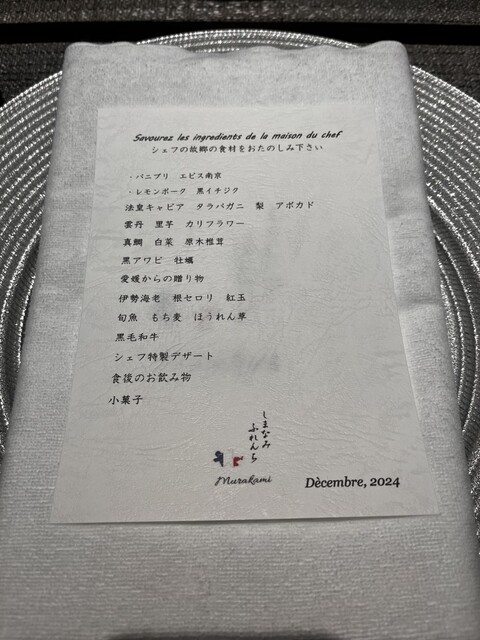 Savourez les ingredients de la maison du chef
シェフの故郷の食材をおたのしみ下さい
・パニプリ エビス南京
・レモンポーク 黒イチジク
法皇キャビア タラバガニ 梨 アボカド
雲丹 里芋 カリフラワー
真鯛 白菜 原木椎茸
黒アワビ 牡蠣
愛媛からの贈り物
伊勢海老 根セロリ 紅玉
旬魚 もち麦 ほうれん草
黒毛和牛
シェフ特製デザート
食後のお飲み物
小菓子
しまなみ
ふれんち
Murakami
Dècembre, 2024